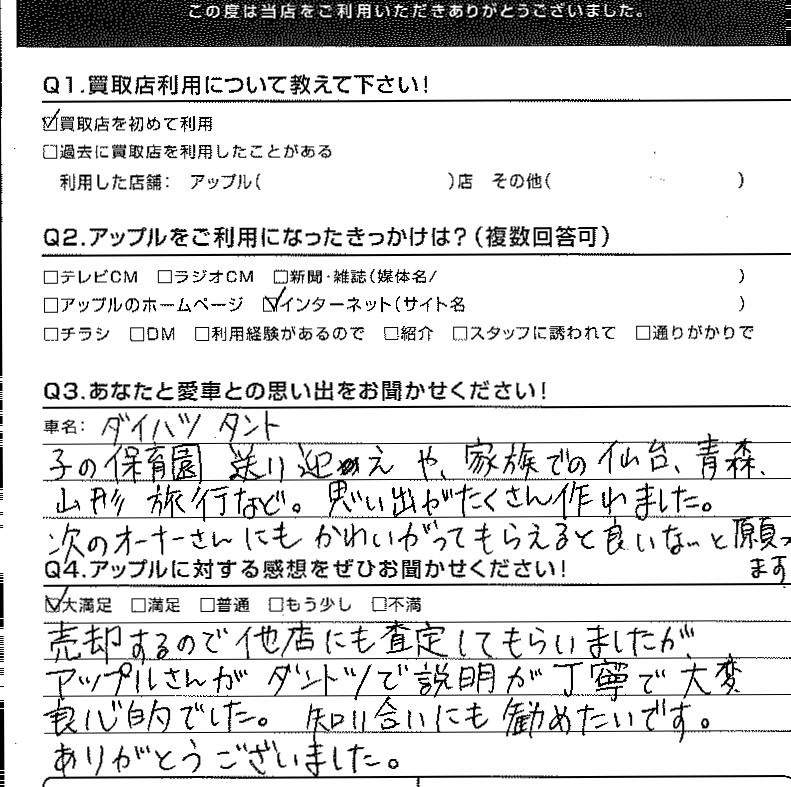 この度は当店をご利用いただきありがとうございました。
Q1.買取店利用について教えて下さい！
☑買取店を初めて利用
□過去に買取店を利用したことがある
利用した店舗： アップル( )店 その他( )
Q2.アップルをご利用になったきっかけは？(複数回答可)
□テレビCM □ラジオCM □新聞・雑誌(媒体名/ )
□アップルのホームページ ☑インターネット(サイト名 )
□チラシ □DM □利用経験があるので □紹介 □スタッフに誘われて □通りがかりで
Q3.あなたと愛車との思い出をお聞かせください！
車名： ダイハツ タント
子の保育園 送り迎えや、家族での仙台、青森、
山形 旅行など。思い出がたくさん作れました。
次のオーナーさんにもかわいがってもらえると良いなぁと願っ
ます
Q4.アップルに対する感想をぜひお聞かせください！
☑大満足 □満足 □普通 □もう少し □不満
売却するので他店にも査定してもらいましたが
アップルさんがダントツで説明が丁寧で大変
良心的でした。知り合いにも勧めたいです。
ありがとうございました。